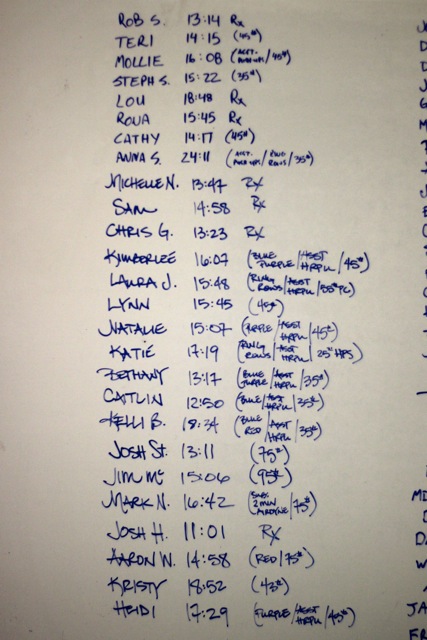 ROB S. 13:14 Rx
TERI 14:15 (45#)
MOLLIE 16:08 (ASST. PUSH UPS/45#)
STEPH S. 15:22 (35#)
LOU 18:48 Rx
ROUA 15:45 Rx
CATHY 14:17 (45#)
ANNA S. 24:11 (ASST. PUSH UPS/RING ROWS/35#)
MICHELLE N. 13:47 Rx
SAM 14:58 Rx
CHRIS G. 13:23 Rx
KIMBERLEE 16:07 (BLUE PURPLE/ASST HRPU/45#)
LAURA J. 15:48 (RING ROWS/ASST HRPU/55# PC)
LYNN 15:45 (45#)
NATALIE 15:07 (PURPLE/ASST HRPU/45#)
KATIE 17:19 (RING ROWS/ASST HRPU/25# HPS)
BETHANY 13:17 (BLUE PURPLE/ASST HRPU/35#)
CAITLIN 12:50 (BLUE/ASST HRPU/35#)
KELLI B. 18:34 (BLUE RED/ASST HRPU/35#)
JOSH ST. 13:11 (75#)
JIM MC 15:06 (95#)
MARK N. 16:42 (SUB: 2 MIN AIRDYNE/75#)
JOSH H. 11:01 Rx
AARON W. 14:58 (RED/75#)
KRISTY 18:52 (43#)
HEIDI 17:29 (PURPLE/ASST HRPU/45#)